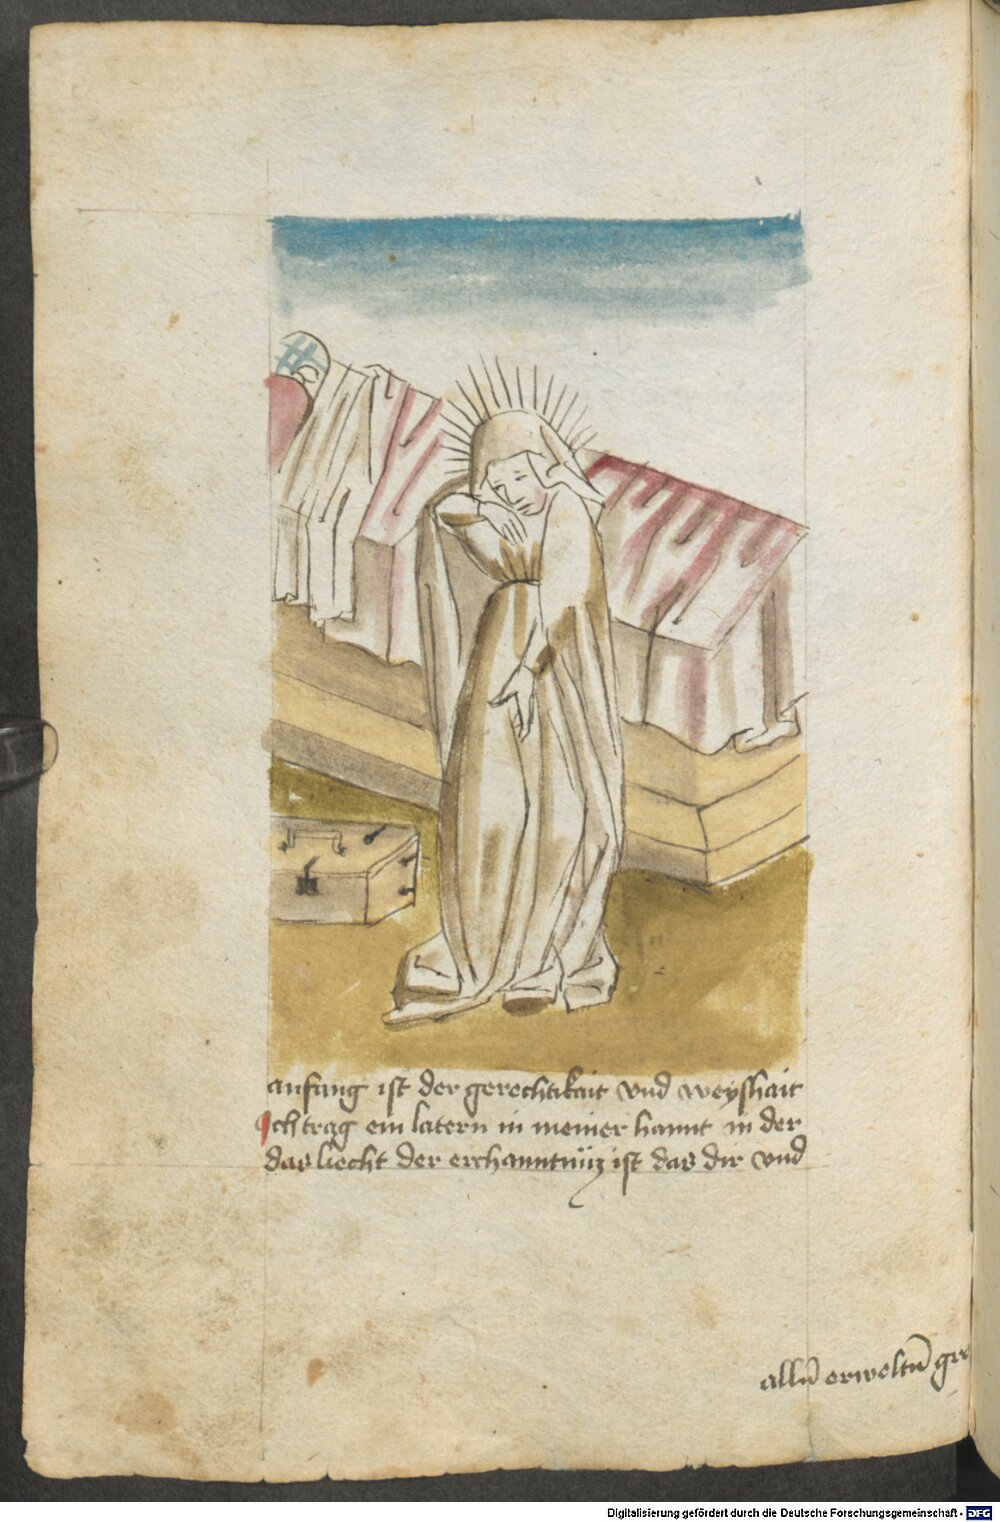 anfang ist der gerechtikait vnd weyshait
Ich trag ein latern in meiner hannt in der
das liecht der erchanntnüz ist das dir vnd
allñ erweltñ
Digitalisierung gefördert durch die Deutsche Forschungsgemeinschaft - DFG